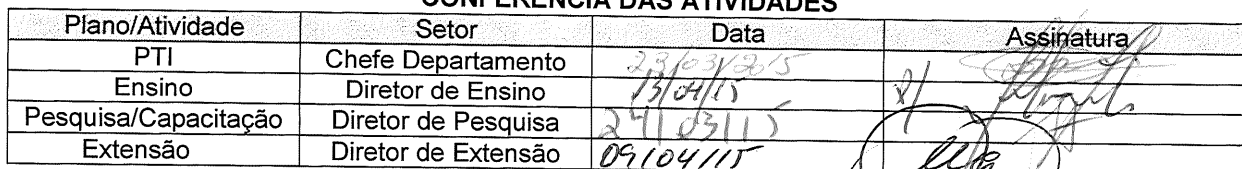 CONFERÊNCIA DAS ATIVIDADES
Plano/Atividade Setor Data Assinatura
PTI Chefe Departamento 23/03/2015
Ensino Diretor de Ensino 13/04/15 P/
Pesquisa/Capacitação Diretor de Pesquisa 24/03/15
Extensão Diretor de Extensão 09/04/15